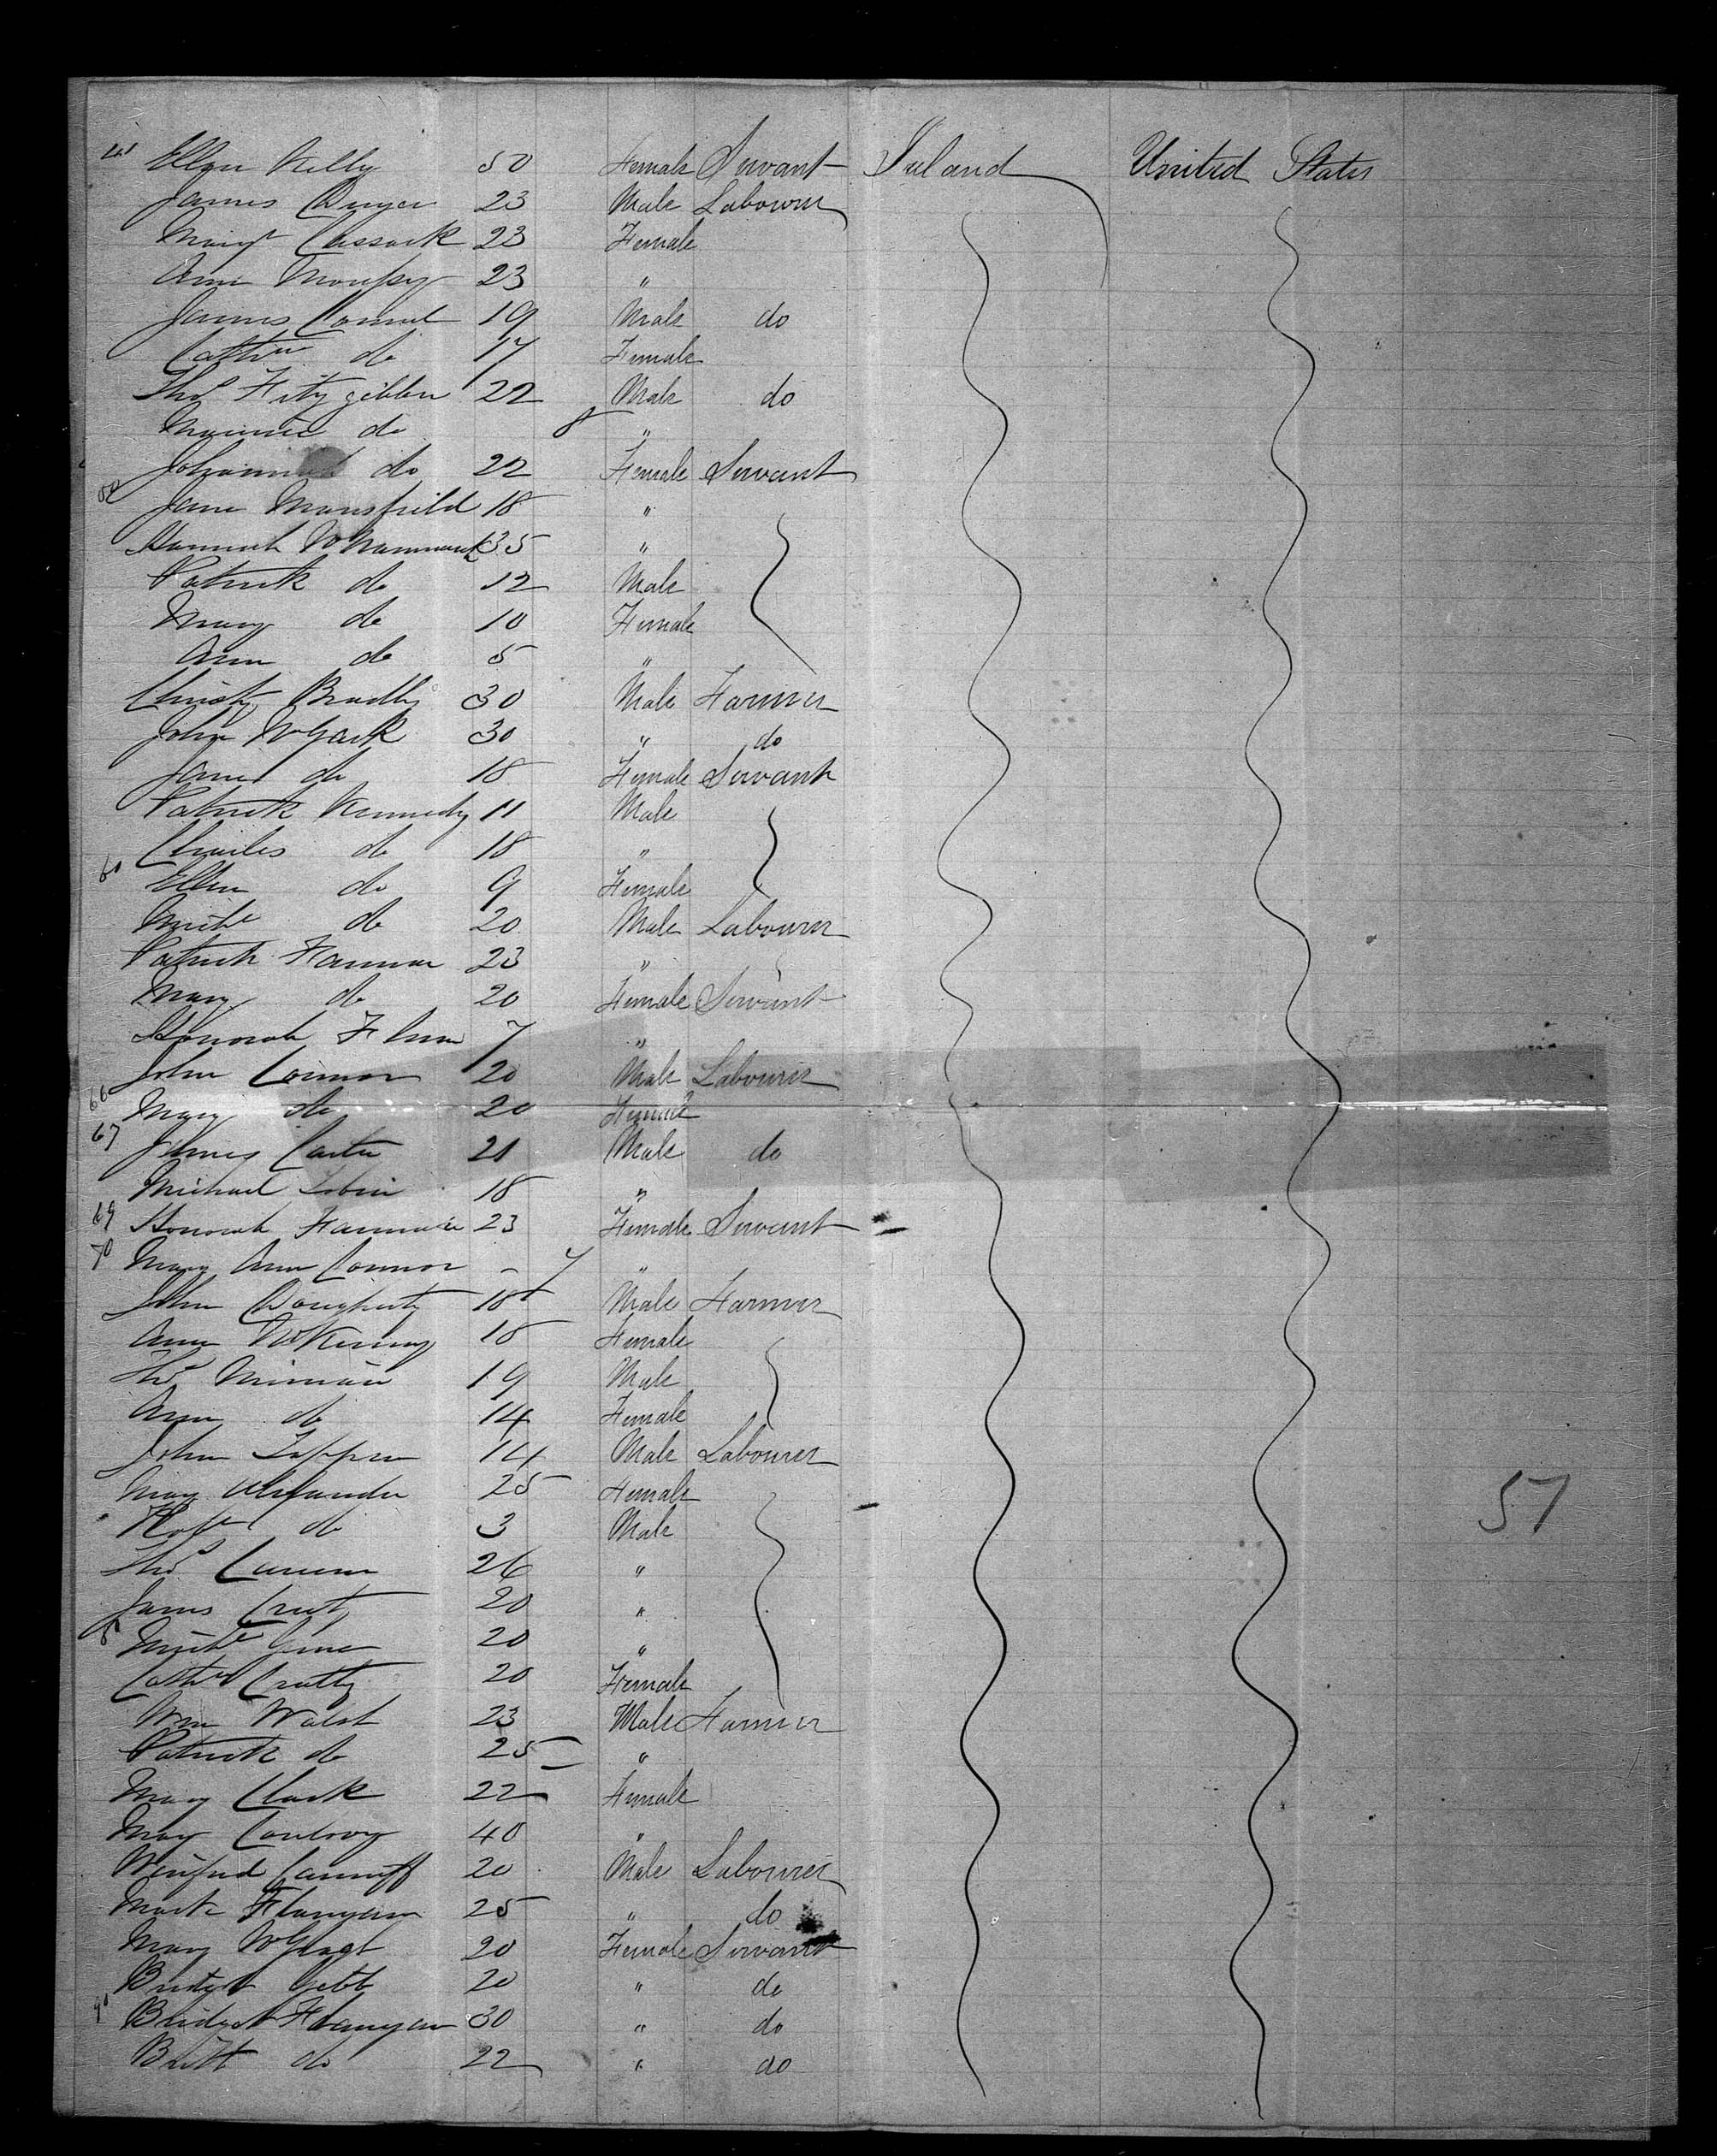 Ellen Kelly 50 Female Servant Ireland United States
James Dwyer 23 Male Labourer
Margt Cussack 23 Female
Ann 23 "
James Connel 19 Male do
Cathne do 17 Female
Thos Fitzgibbon 22 Male do
Maurice do 8 "
Johannah do 22 Female Servant
Jane Mansfield 18 "
Hannah McNammara 35 "
Patrick do 12 Male
Mary do 10 Female
Ann do 5 "
Christy Bradly 30 Male Farmer
John 30 " do
Jane do 18 Female Servant
Patrick Kennedy 11 Male
Charles do 18 "
60 Ellen do 9 Female
Michl do 20 Male Labourer
Patrick Hannon 23 "
Mary do 20 Female Servant
Honorah 7 "
John Connor 20 Male Labourer
66 Mary do 20 Female
67 James Carter 21 Male do
Michael Tobin 18 "
69 Honorah 23 Female Servant
70 Mary Ann Connor - 7 "
John Dougherty 18 Male Farmer
Ann McKinney 18 Female
Thos 19 Male
Ann do 14 Female
John 14 Male Labourer
Mary Alexander 25 Female
Robt do 3 Male
Thos 26 "
James 20 "
80 Michl 20 "
Cathe 20 Female
Wm Walsh 23 Male Farmer
Patrick do 25 "
Mary Clark 22 Female
Mary Conboy 40 "
Winifred 20 Male Labourer
Mark Flanigan 25 " do
Mary 20 Female Servant
Bridget 20 " do
90 Bridget Flanigan 30 " do
do 22 " do
57